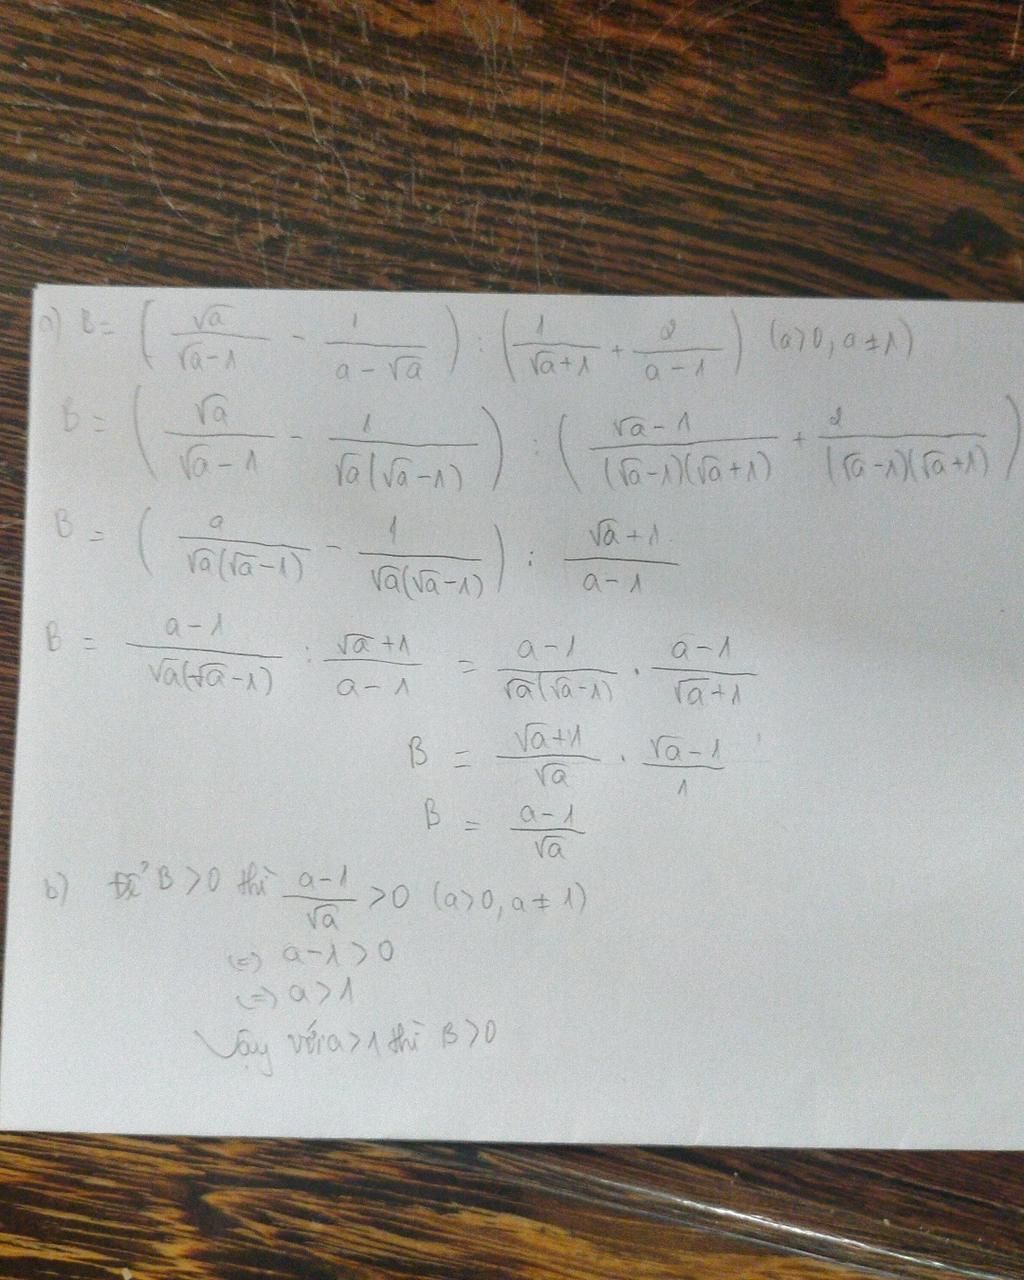 a) B = ( √a / (√a - 1) - 1 / (a - √a) ) : ( 1 / (√a + 1) + 2 / (a - 1) ) (a>0, a ≠ 1)
B = ( √a / (√a - 1) - 1 / (√a(√a - 1)) ) : ( (√a - 1) / ((√a - 1)(√a + 1)) + 2 / ((√a - 1)(√a + 1)) )
B = ( a / (√a(√a - 1)) - 1 / (√a(√a - 1)) ) : (√a + 1) / (a - 1)
B = (a - 1) / (√a(√a - 1)) : (√a + 1) / (a - 1) = (a - 1) / (√a(√a - 1)) . (a - 1) / (√a + 1)
B = (√a + 1) / √a . (√a - 1) / 1
B = (a - 1) / √a
b) Để B > 0 thì (a - 1) / √a > 0 (a>0, a ≠ 1)
(=) a - 1 > 0
(=) a > 1
Vậy với a > 1 thì B > 0